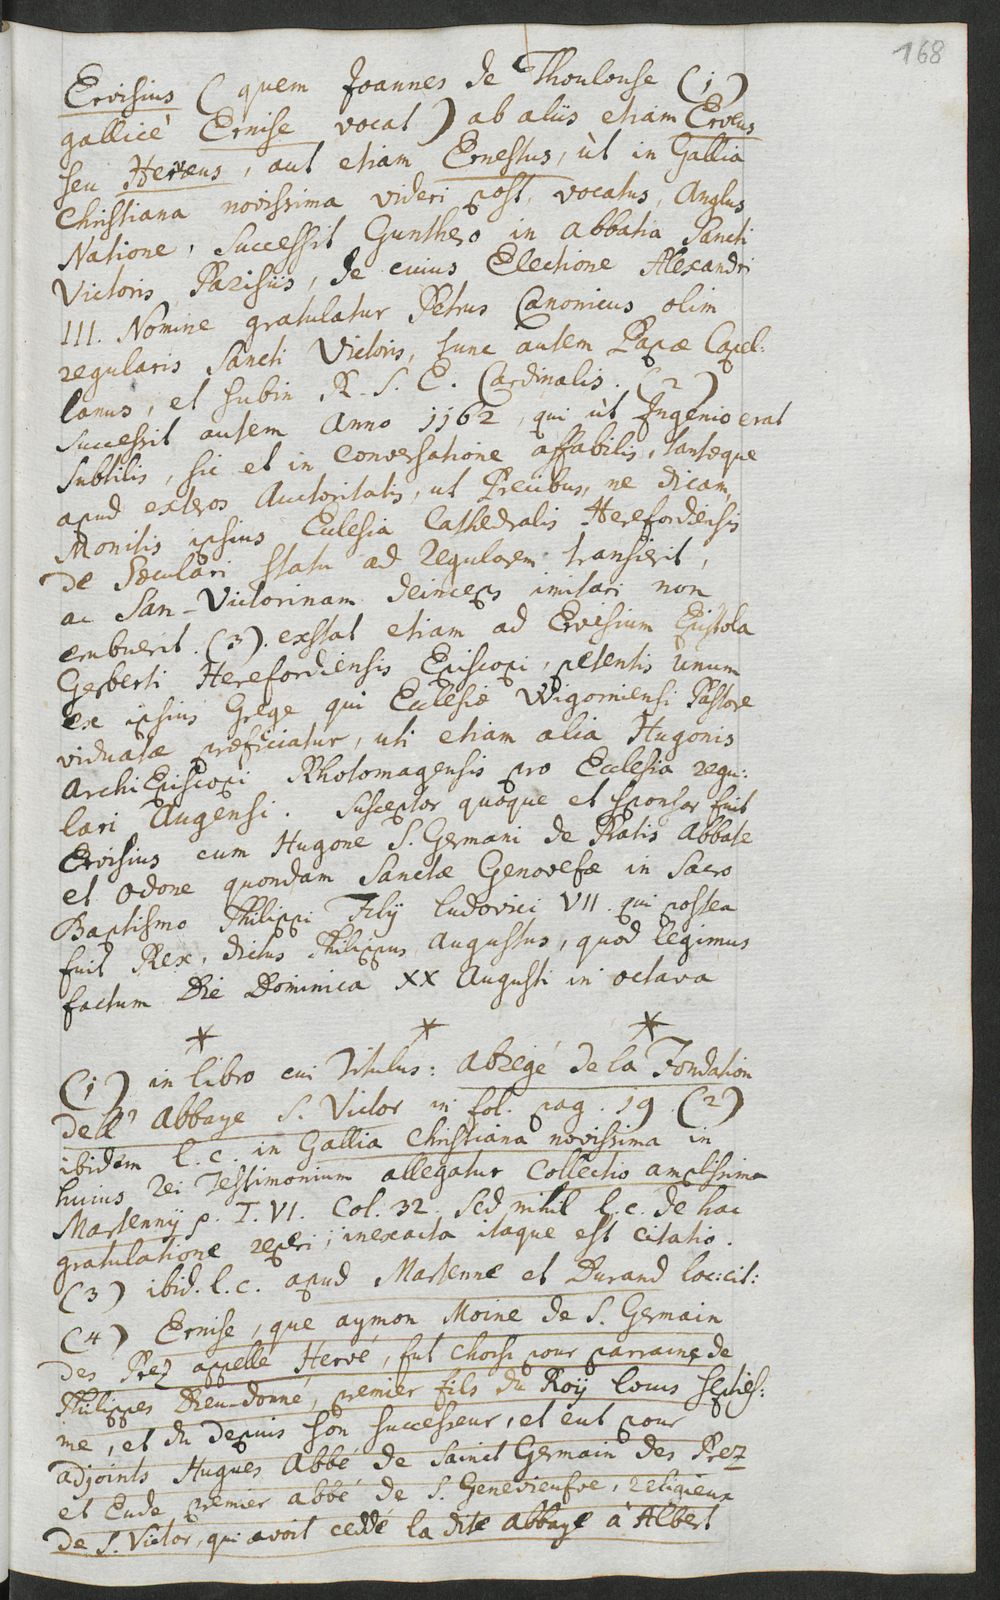 168
Ervisius ( quem Joannes de Thoulouse (1)
gallicè Ernise vocat ) ab aliis etiam Erveus
seu Herveus, aut etiam Ernestus, ùt in Gallia
Christiana novissima videri post, vocatus, Anglus
Natione, Successit Gunthero in abbatia Sancti
Victoris Parisiis, de cuius Electione Alexandri
III. Nomine gratulatur Petrus Canonicus olim
regularis Sancti Victoris, tunc autem Papæ Capel:
lanus, et subin R. S. E. Cardinalis. (2)
Successit autem Anno 1162, qui ùt Ingenio erat
subtilis, sic et in Conversatione affabilis, tantæque
apud exteros Auctoritatis, ut Precibus, ne dicam,
Monitis ipsius Eclesia Cathedralis Herefordiensis
de Sæculari statu ad regularem transierit,
ac San-Victorinam deinceps imitari non
erubuerit. (3). exstat etiam ad Ervisium Epistola
Gerberti Herefordiensis Episcopi, petentis unum
ex ipsius Grege qui Ecclesiæ Wigorniensi Pastore
viduatæ præficiatur, uti etiam alia Hugonis
Archi Episcopi Rhotomagensis pro Ecclesia regu:
lari Augensi. Susceptor quoque et sponsor fuit
Ervisius cum Hugone S. Germani de Pratis Abbate
et Odone quondam Sanctæ Genovefæ in Sacro
Baptismo Philippi Filij Ludovici VII. qui postea
fuit Rex, dictus Philippus Augustus, quod legimus
factum Die Dominica XX Augusti in octava
* * *
(1) in libro cui Titulus: Abregé de la Fondation
dell' Abbaye S. Victor in fol. pag. 19 (2)
ibidem l. c. in Gallia Christiana novissima in
huius rei Testimonium allegatur Collectio amplissima
Martennij p. T. VI. Col. 32. Sed nihil l. c. de hac
gratulatione reperi; inexacta itaque est citatio.
(3) ibid. l. c. apud Martenne et Durand loc: cit:
(4) Ernise, que aymon Moine de S. Germain
des Prez apellé Hervé, fut choisi pour parraine de
Philippes Dieu-donné, premier fils du Roÿ Louis septies:
me, et du depuis son successeur, et eut pour
adjoints Hugues Abbé de Sainct Germain des Prez
et Eude premier abbé de S. Genevieufve, religieux
de S. Victor, qui avoit ceddé la dite Abbaye à Albert